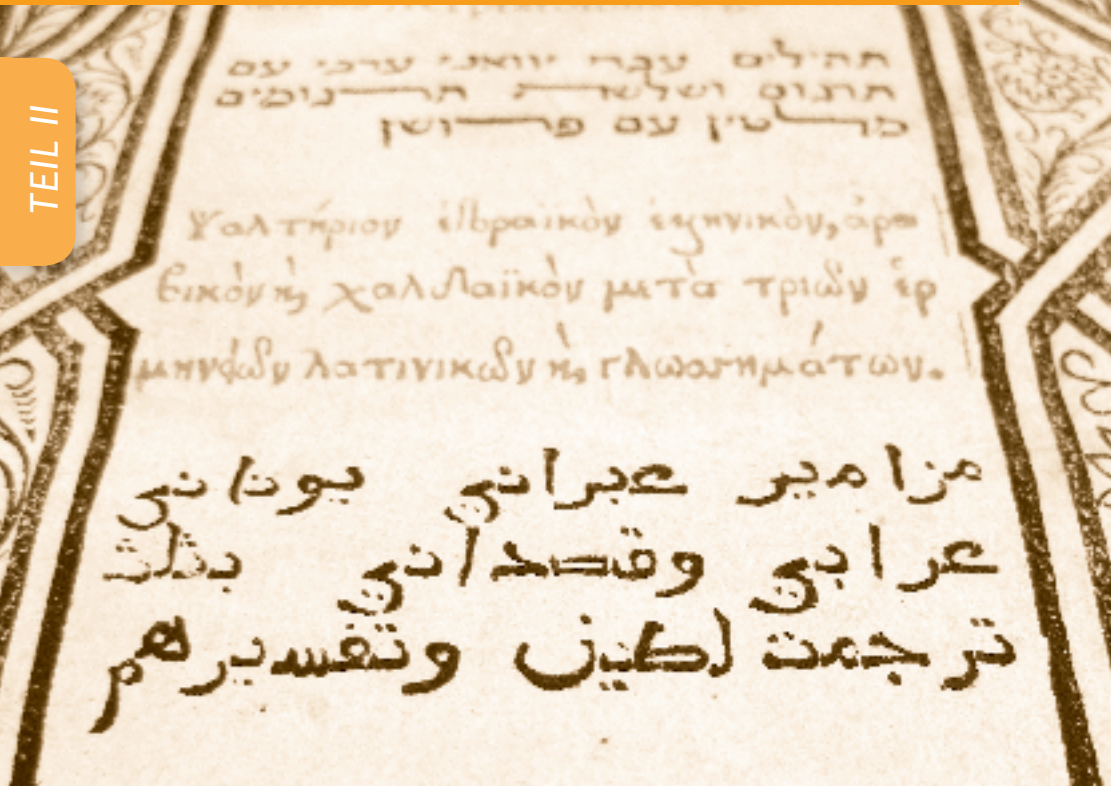 TEIL II
תהילים עברי יוואני ערבי עם
תרגום ושלשה תרגומים
מלטין עם פרושן
Ψαλτήριον ἑβραικὸν ἑλληνικὸν, ἀρα
βικὸν ϗ χαλδαϊκὸν μετὰ τριῶν ἑρ
μηνειῶν λατινικῶν ϗ γλωσσημάτων.
مزامير عبراني يوناني
عرابي وقصداني بثلث
ترجمت لطين وتفسيرهم